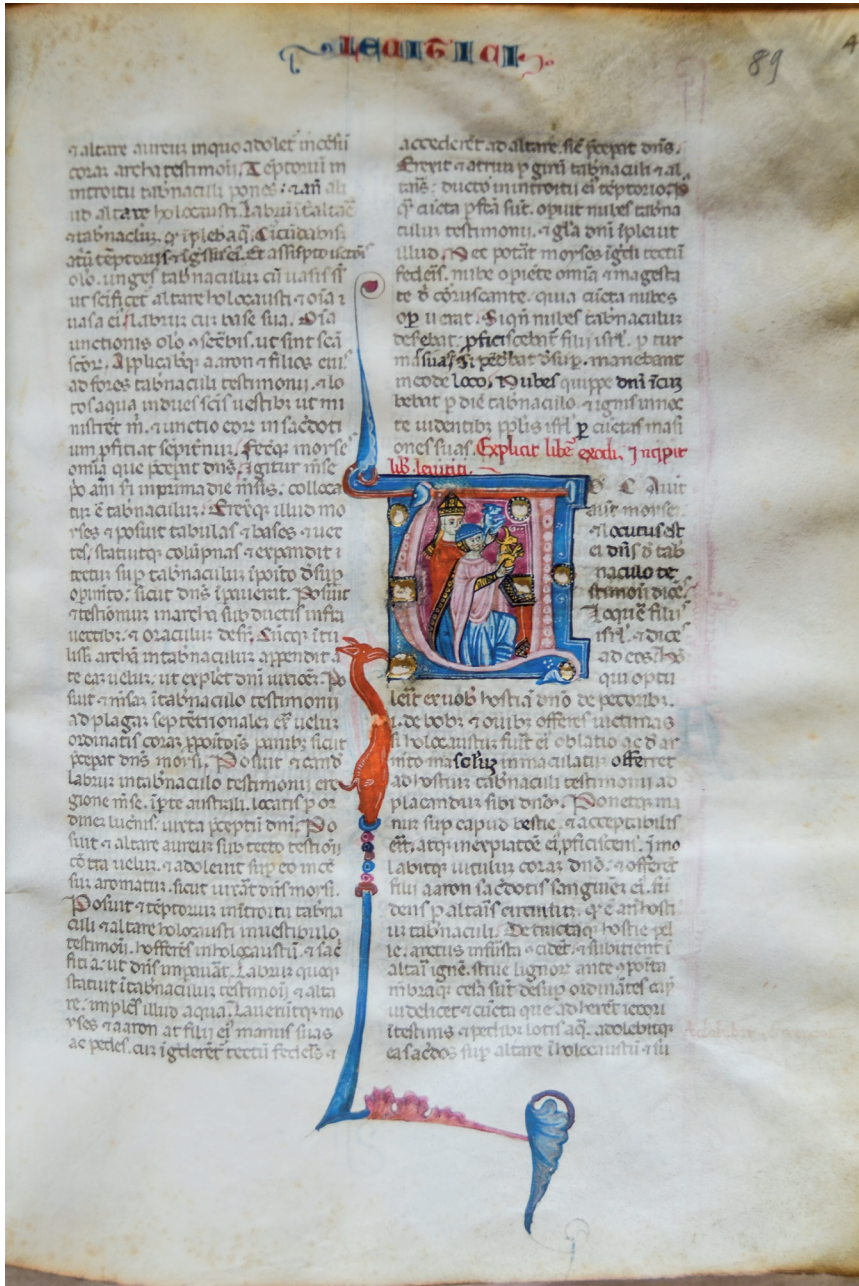 LEVITICI
89
4
⁊ altare aureū in quo adolet̄ incēsū
corā archa testimonii. Tēptoriū in
introitu tabn̄aculi pones. ⁊ an̄ il
ud altare holocausti. Labrū īt̄ altaē
⁊ tabn̄aclū. q̄ īplebis aq̄. Cīcūdabisq̄
olō. unges tabn̄aculū cū uasis s̄
ut sc̄ificet̄ altare holocausti ⁊ oīa
uasa ei labrū cū base sua. Oīa
unctionis oleo ut sint sc̄ā
sc̄oꝝ. Applicabisq̄ aaron ⁊ filios eiꝰ
ad fores tabn̄aculi testimonii. ⁊ lo
tos aqua indues sc̄is uestibꝫ ut mi
nistrēt m̄. ⁊ unctio eoꝝ in sac̄doti
um p̄ficiat sēpit̄nū. Fecitq̄ moyses
omīa que p̄cep̄at dn̄s. igit̄ mēse
p̄o an̄i sī in prima die mēsis. colloca
tū ē tabn̄aculū. Erexitq̄ illud mo
yses ⁊ posuit tabulas ⁊ bases ⁊ uec
tes, statuitq̄ colūpnas ⁊ expandit
tectū sup̄ tabn̄aculū īpōito dēsup̄
op̄im̄to. sicut dn̄s īpauerat. Posuit
⁊ testimoniū in archa subductis infra
uectibꝫ. ⁊ oraculū desup̄. Cūq̄ ītu
liss̄ archā in tabn̄aculū appendit ā
te eā uelū. ut explet̄ dn̄i iussionē. Po
suit ⁊ mēsā ī tabn̄aculo testimonii
ad plagā septēt̄onalē ext̄ uelū
ordinatis corā p̄posit̄ōis panibꝫ sicut
p̄cep̄at dn̄s moysi. Posuit ⁊ cand̄
labrū in tabn̄aculo testimonii ere
gione mēse. ī p̄te australi. locatis p̄ or
dinē luc̄nis. iuxta p̄ceptū dn̄i. Po
suit ⁊ altare aureū sub tecto testimōii
cōtra uelū. ⁊ adoleuit sup̄ eo incē
sū aromatū. sicut iuss̄at dn̄s moysi.
Posuit ⁊ tēptoriū in introitu tabn̄a
culi ⁊ altare holocausti in uestibulo
testimōii. hofferēs in holocaustū. ⁊ sac̄
ficia. ut dn̄s imp̄auat. Labrū quoqꝫ
statuit ī tabn̄aculū testimonii ⁊ alta
re. implēs illud aqua. Lauerūtq̄ mo
yses ⁊ aaron ac filii eiꝰ manus suas
ac pedes. cū īgred̄ent̄ tectū fed̄eis ⁊
accederēt ad altare. sic̄ p̄cepat dn̄s.
Erexit ⁊ atriū p̄ girū tabn̄aculi ⁊ al
taris. ducto in introitu eiꝰ tēptorio.
q̄ cūcta p̄fcā sūt. op̄uit nubes tabn̄a
culū testimonii. ⁊ gl̄a dn̄i īpleuit
illud. Nec pot̄at moyses īgredi tectū
fed̄eis. nube op̄iēte omīa ⁊ magesta
te dn̄i coruscante. quia cūcta nubes
op̄uerat. Siqn̄ nubes tabn̄aculū
deserebat. p̄ficiscebant̄ filii isrl̄. p̄ tur
mas suas. Si pēdebat desup̄. manebant
in eodē loco. Nubes quippe dn̄i īcū
bebat p̄ diē tabn̄aculo. ⁊ ignis in noc
te uidentibꝫ pp̄lis isrl̄ p̄ cūctas māsi
ones suas. Explicit liber exodi. Incipit
lib̄ leuitici.
VOCAuit
autē moyse.
⁊ locutus est
ei dn̄s de tab
naculo te
stimonii dicēs.
Loquē filiis
isrl̄. ⁊ dices
ad eos. Ho
qui optu
lerit ex uobꝫ hostiā dn̄o de pecoribꝫ.
i. de bobꝫ ⁊ ouibꝫ offerēs uictimas
si holocaustū fuīt ei oblatio ac de ar
mēto masculū inmaculatū offerret
ad hostiū tabn̄aculi testimonii ad
placandū sibi dn̄m. Ponetq̄ ma
nū sup̄ capud hostie. ⁊ acceptabilis
erit. atq̄ in expiatōē eiꝰ p̄ficiscens. īmo
labitq̄ uitulū corā dn̄o. ⁊ offerēt
filii aaron sac̄dotis sanguinē eiꝰ. fū
dens p̄ altaris circuitū. q̄ ē an̄ hosti
ū tabn̄aculi. Detractaq̄ hostie pel
le. artus in frusta ⁊ cidēt. ⁊ subitient ī
altari ignē. strue lignoꝝ ante ꝯpoīta
mēbraq̄ cesa sūt desup̄ ordinātes cap̄
uidelicet ⁊ cūcta que adherēt iecori
ītestinis ⁊ pedibꝫ lotis aq̄. adolebitq̄
ea sac̄dos sup̄ altare ī holocaustū ⁊ su